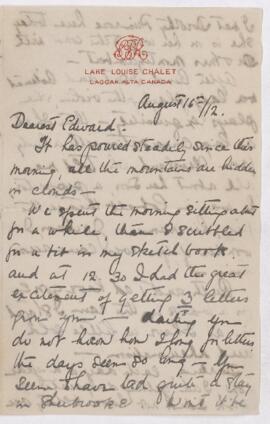 LAKE LOUISE CHALET
LAGGAN, ALTA, CANADA
August 16th/12.
Dearest Edward:
It has poured steadily since this
morning, all the mountains are hidden
in clouds —
We spent the morning sitting about
for a while, then I scribbled
for a bit in my sketch book.
and at 12.30 I had the great
excitement of getting 3 letters
from you — darling you
do not know how I long for letters
the days seem so long — you
seem to have had quite a stay
in Sherbrooke wont it be